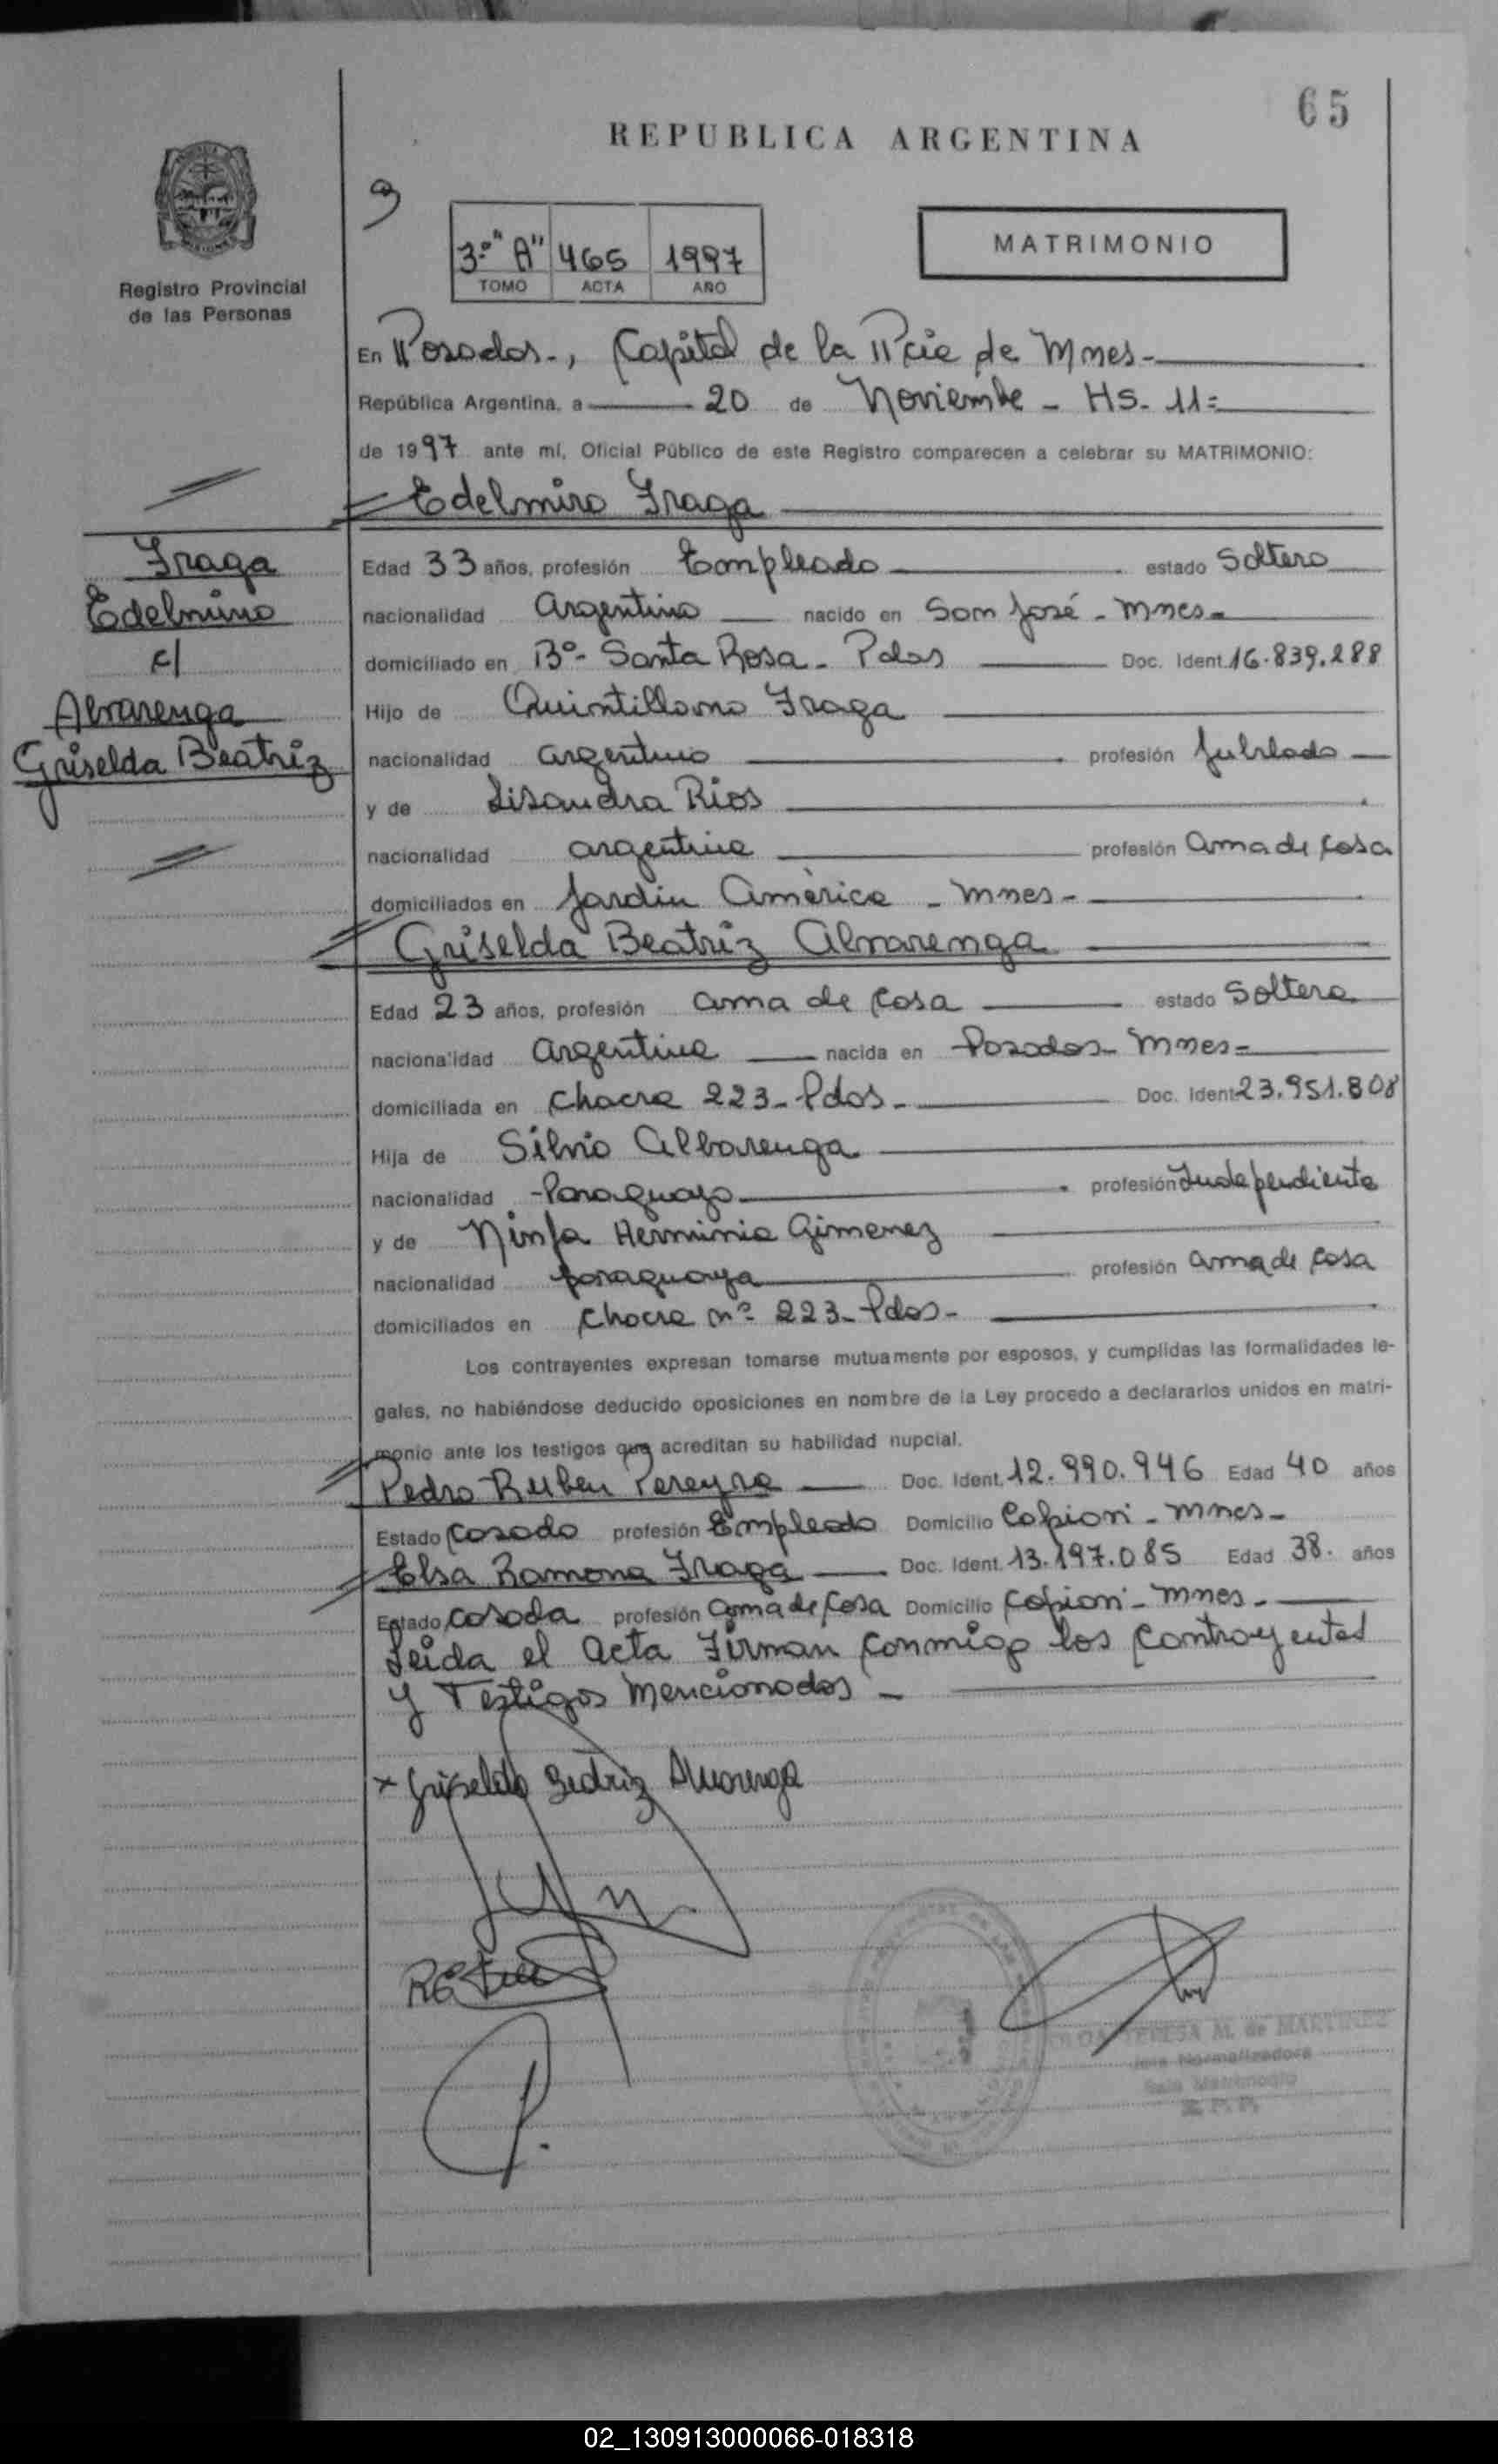 65
REPUBLICA ARGENTINA
Registro Provincial
de las Personas
3º "A" 465 1997
TOMO ACTA AÑO
MATRIMONIO
En Posadas-, Capital de la Pcia de Mnes-
República Argentina, a 20 de Noviembre - Hs. 11=
de 1997 ante mí, Oficial Público de este Registro comparecen a celebrar su MATRIMONIO:
Edelmiro Fraga
Fraga
Edelmiro
c/
Alvarenga
Griselda Beatriz
Edad 33 años, profesión Empleado estado Soltero
nacionalidad Argentino nacido en San José - Mnes-
domiciliado en Bº- Santa Rosa - Pdas Doc. Ident. 16.839.288
Hijo de Quintiliano Fraga
nacionalidad argentino profesión Jubilado
y de Lisandra Rios
nacionalidad argentina profesión ama de casa
domiciliados en Jardin América - Mnes-
Griselda Beatriz Alvarenga
Edad 23 años, profesión ama de casa estado Soltera
nacionalidad argentina nacida en Posadas- Mnes-
domiciliada en Chacra 223- Pdas- Doc. Ident. 23.951.808
Hija de Silvio Albarenga
nacionalidad -Paraguayo profesión Independiente
y de Ninfa Herminia Gimenez
nacionalidad paraguaya profesión ama de casa
domiciliados en Chacra nº 223- Pdas-
Los contrayentes expresan tomarse mutuamente por esposos, y cumplidas las formalidades le-
gales, no habiéndose deducido oposiciones en nombre de la Ley procedo a declararlos unidos en matri-
monio ante los testigos que acreditan su habilidad nupcial.
Pedro Ruben Pereyra Doc. Ident. 12.990.946 Edad 40 años
Estado Casado profesión Empleado Domicilio Capiovi - Mnes-
Elsa Ramona Fraga Doc. Ident. 13.197.085 Edad 38. años
Estado Casada profesión Ama de Casa Domicilio Capiovi - Mnes-
Leida el acta Firman conmigo los contrayentes
y Testigos mencionados -
x Griselda Beatriz Alvarenga
TERESA M. de MARTINEZ
02_130913000066-018318